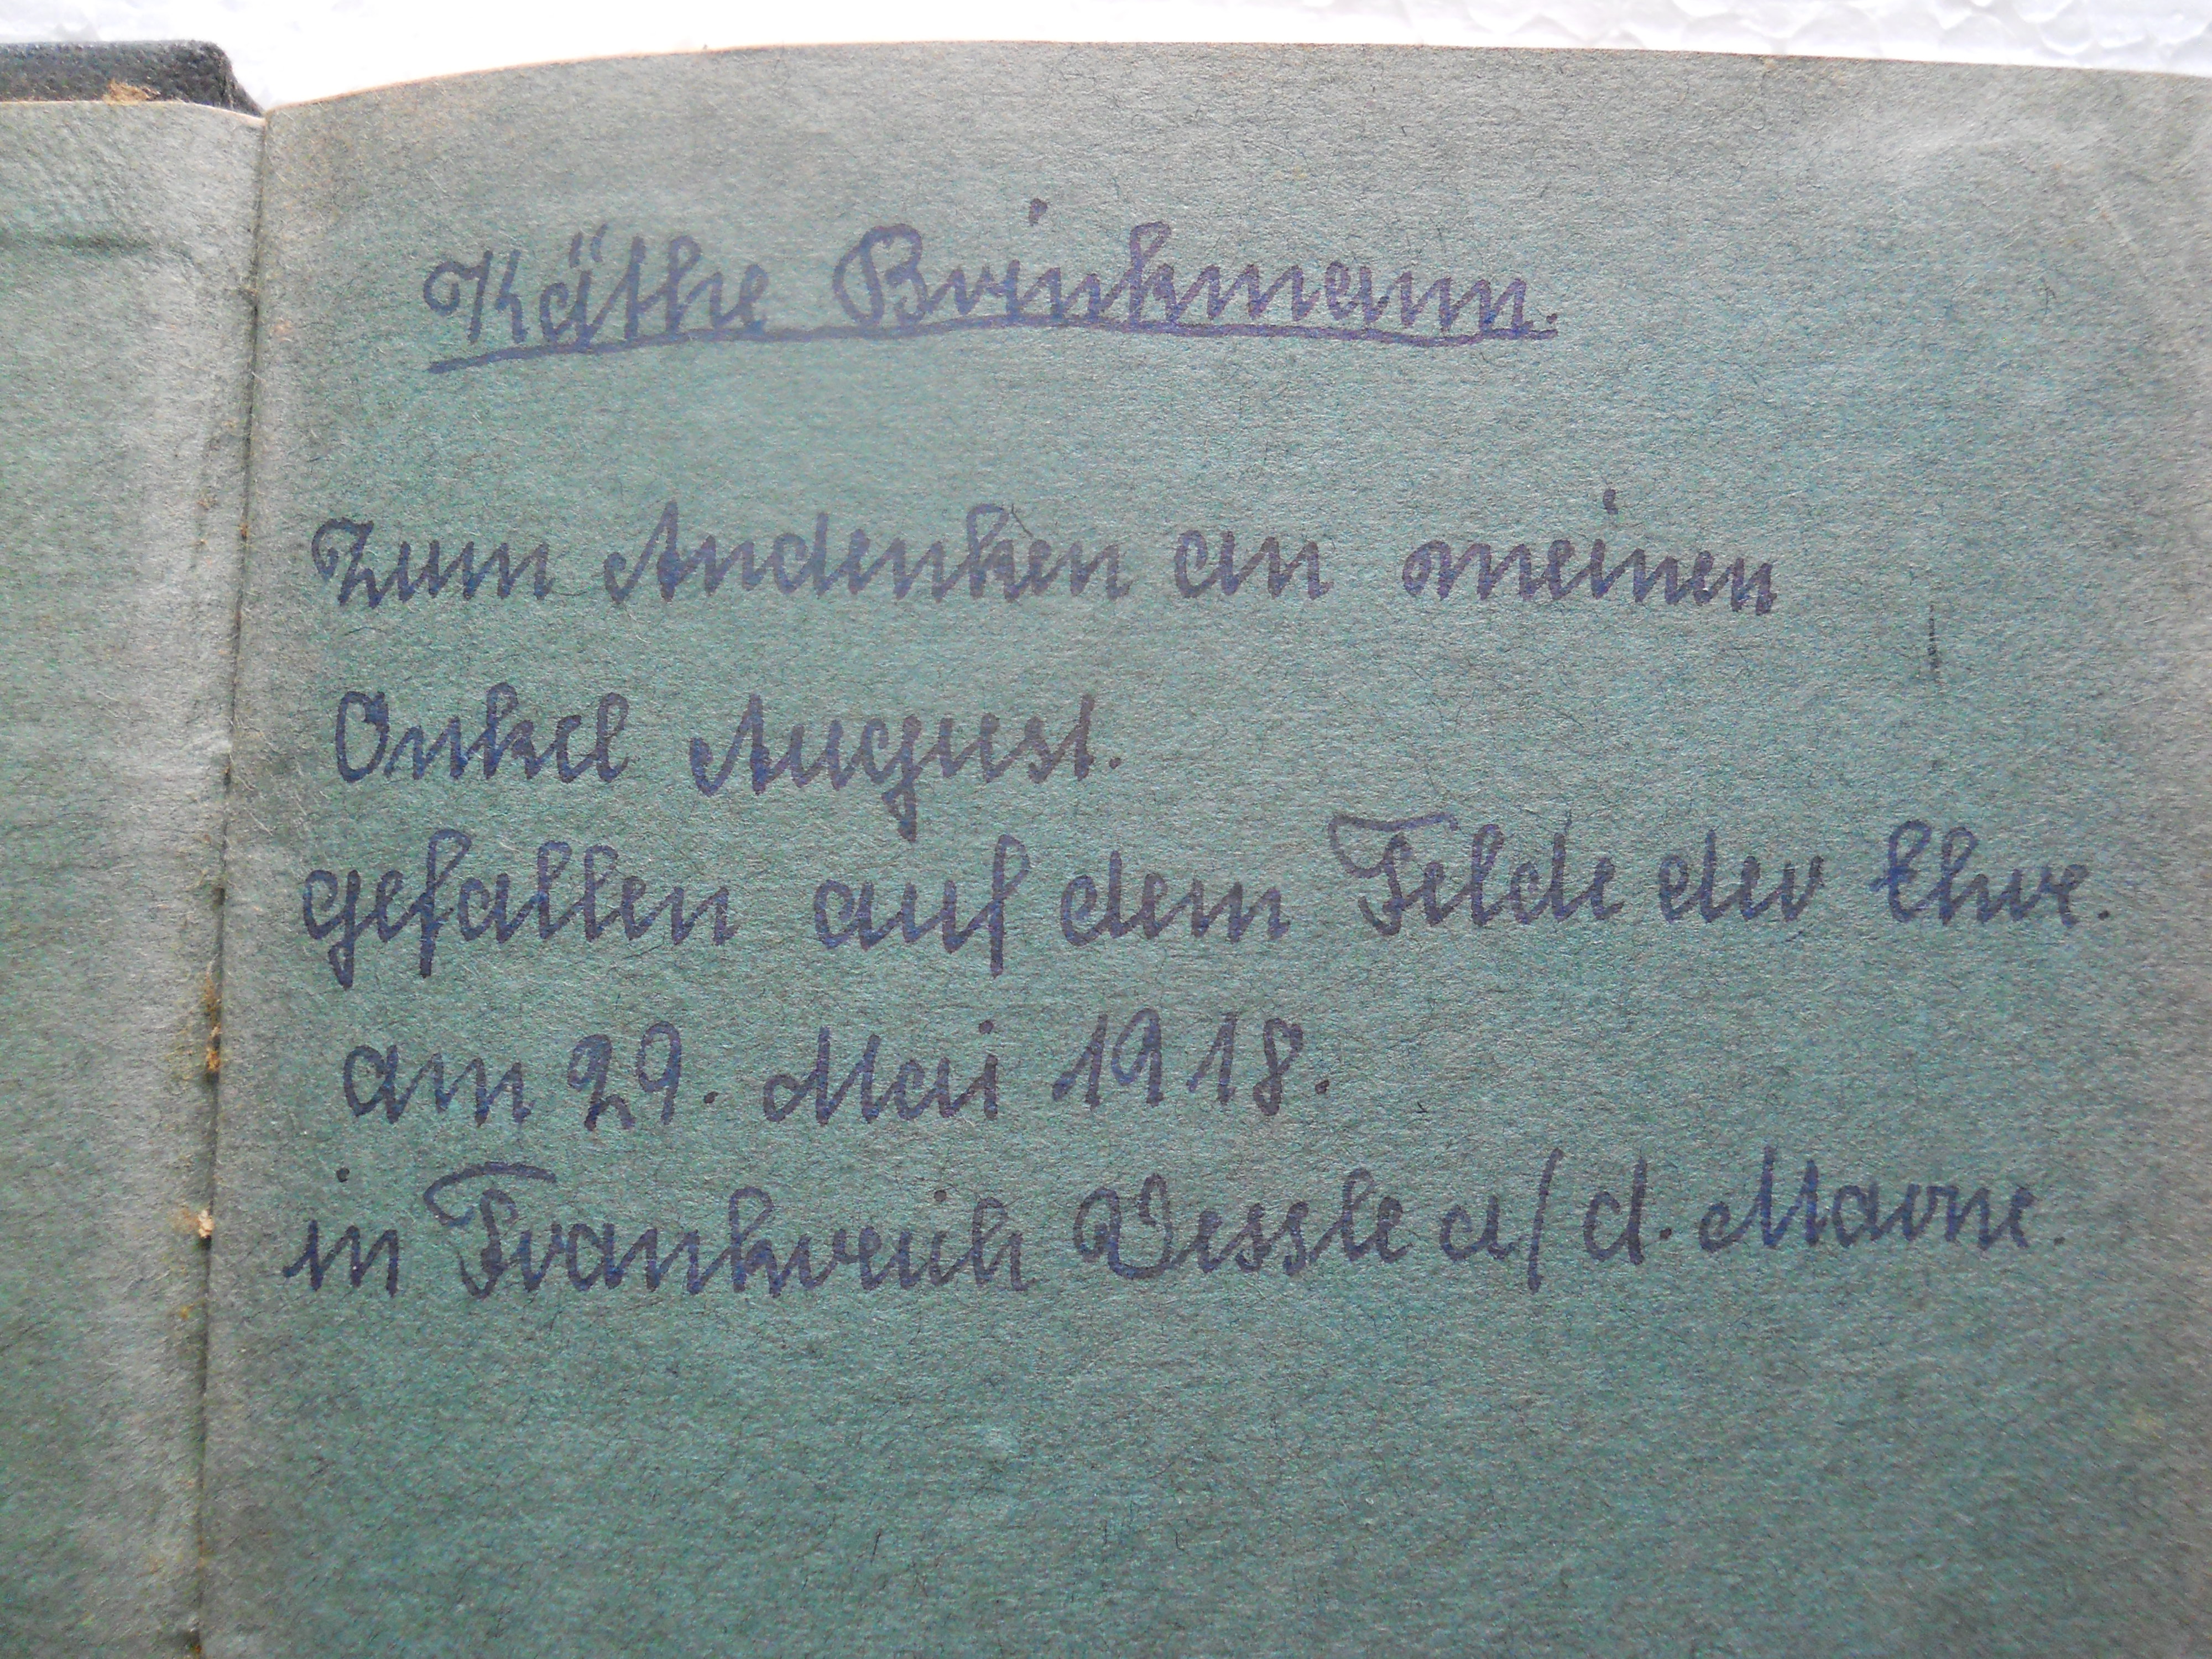 Käthe Brinkmann.
Zum Andenken an meinen
Onkel August.
gefallen auf dem Felde der Ehre.
am 29. Mai 1918.
in Frankreich Vessle a/d. Marne.